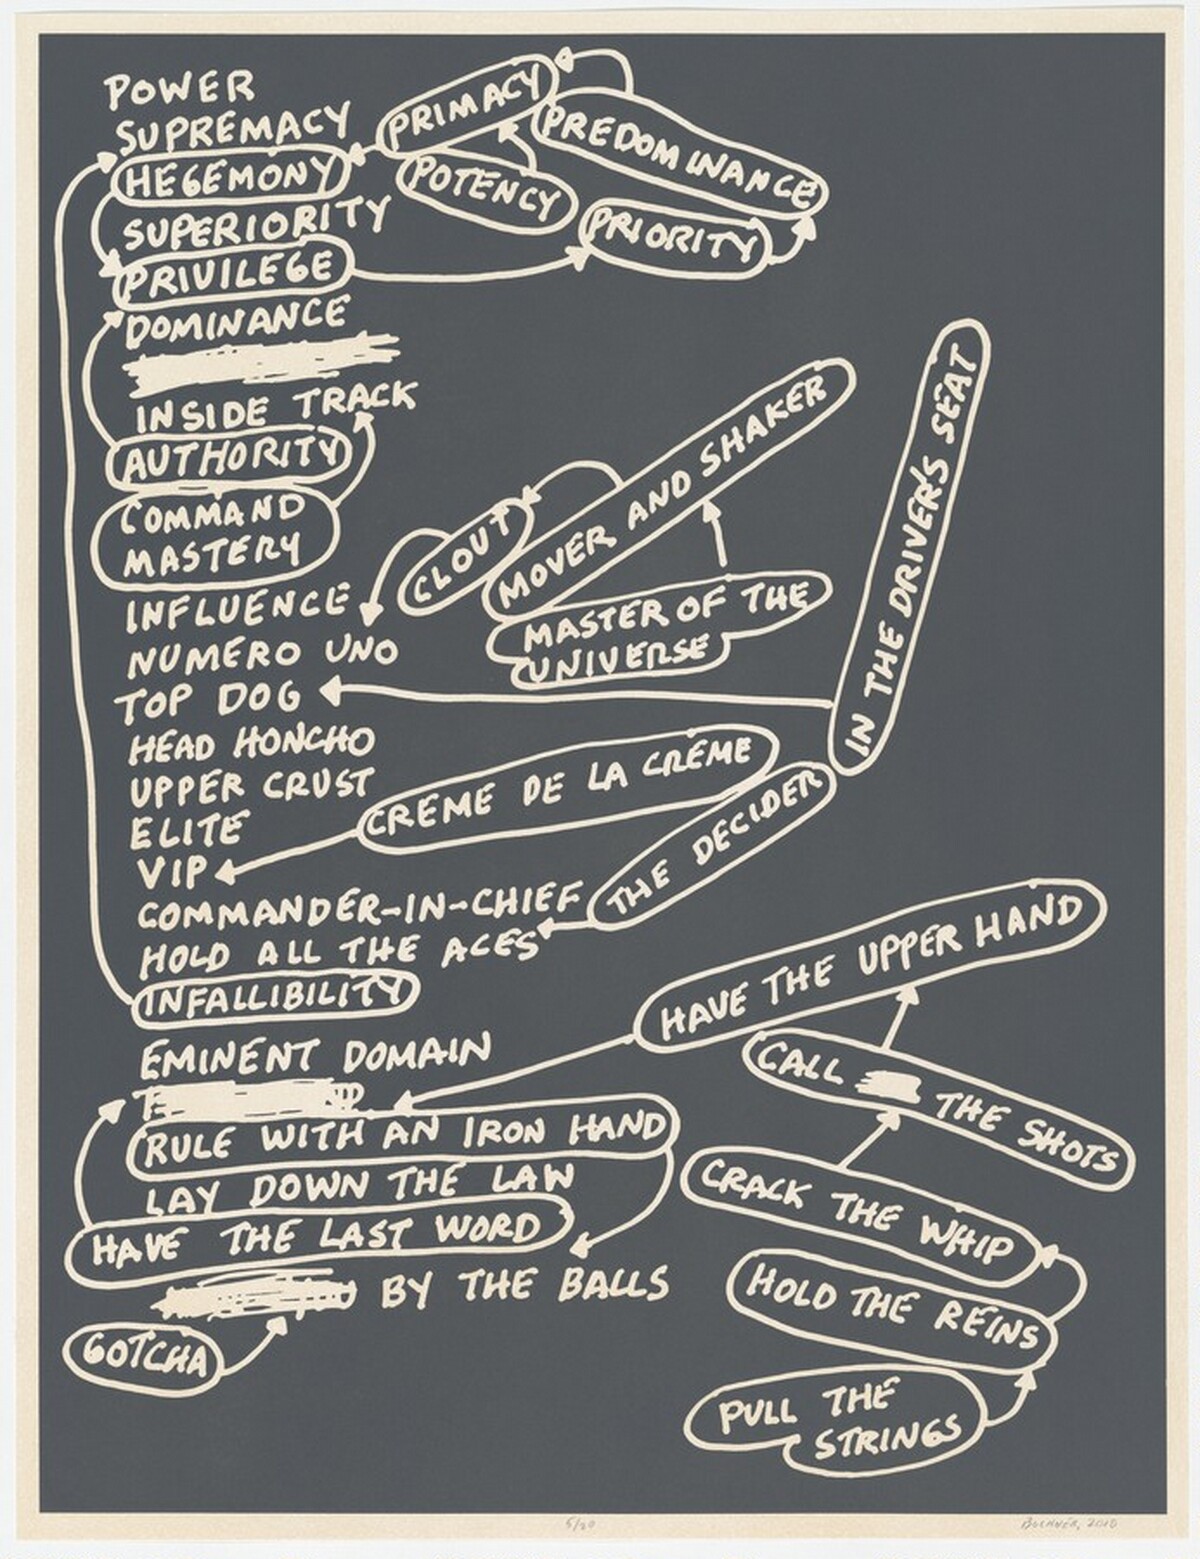 POWER
SUPREMACY
HEGEMONY
SUPERIORITY
PRIVILEGE
DOMINANCE
INSIDE TRACK
AUTHORITY
COMMAND
MASTERY
INFLUENCE
NUMERO UNO
TOP DOG
HEAD HONCHO
UPPER CRUST
ELITE
VIP
COMMANDER-IN-CHIEF
HOLD ALL THE ACES
INFALLIBILITY
EMINENT DOMAIN
RULE WITH AN IRON HAND
LAY DOWN THE LAW
HAVE THE LAST WORD
BY THE BALLS
GOTCHA
PRIMACY
PREDOMINANCE
POTENCY
PRIORITY
CLOUT
MOVER AND SHAKER
MASTER OF THE
UNIVERSE
IN THE DRIVER'S SEAT
CRÈME DE LA CRÈME
THE DECIDER
HAVE THE UPPER HAND
CALL THE SHOTS
CRACK THE WHIP
HOLD THE REINS
PULL THE
STRINGS
5/20
BOCHNER, 2010